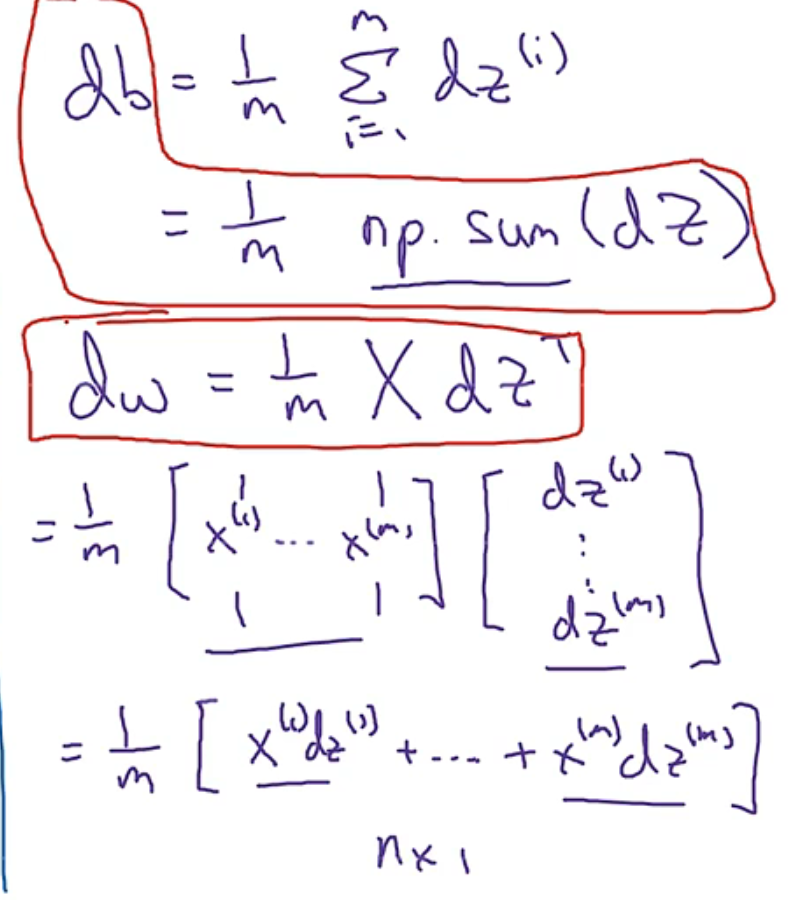 db = 1/m Σ_{i=1}^{m} dz^{(i)}
= 1/m np.sum(dZ)
dw = 1/m X dZ^T
= 1/m [x^{(1)} ... x^{(m)}] [dz^{(1)} ⋮ dz^{(m)}]
= 1/m [x^{(1)}dz^{(1)} + .... + x^{(m)}dz^{(m)}]
n×1